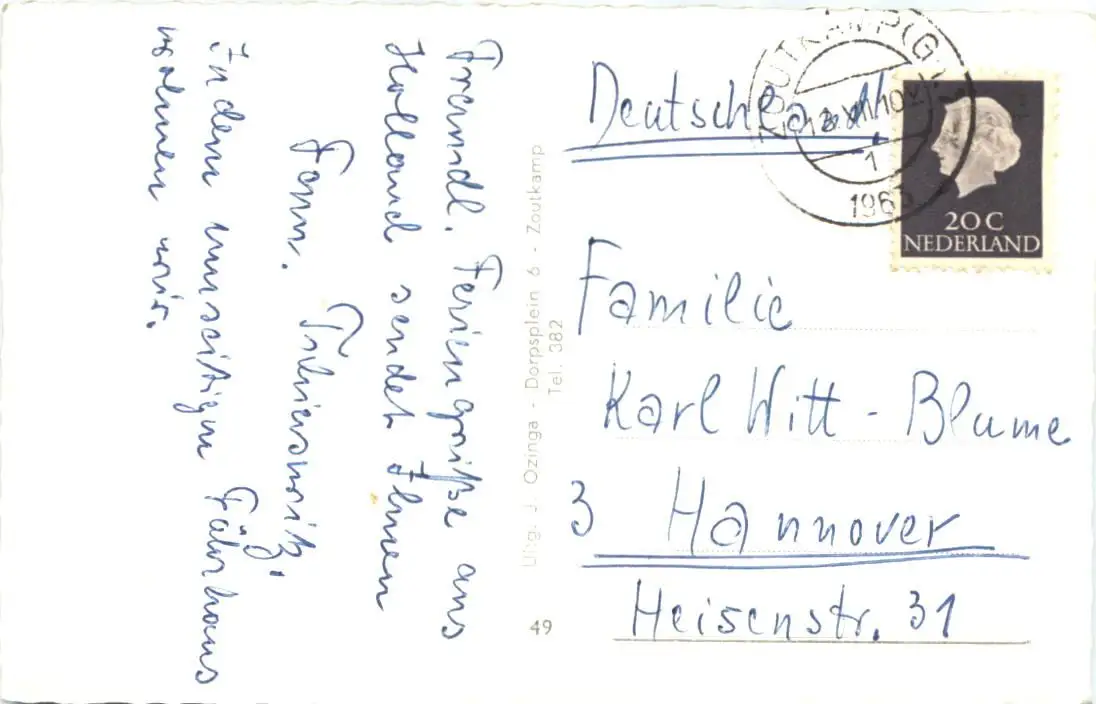 Freundl. Feriengrüße aus
Holland sendet Ihnen
Fam.
In dem umseitigen Fährhaus
wohnen wir.
Uitg. J. Ozinga - Dorpsplein 6 - Zoutkamp
Tel. 382
49
ZOUTKAMP (GR.)
1
1963
20 C
NEDERLAND
Deutschland
Familie
Karl Witt - Blume
3 Hannover
Heisenstr. 31